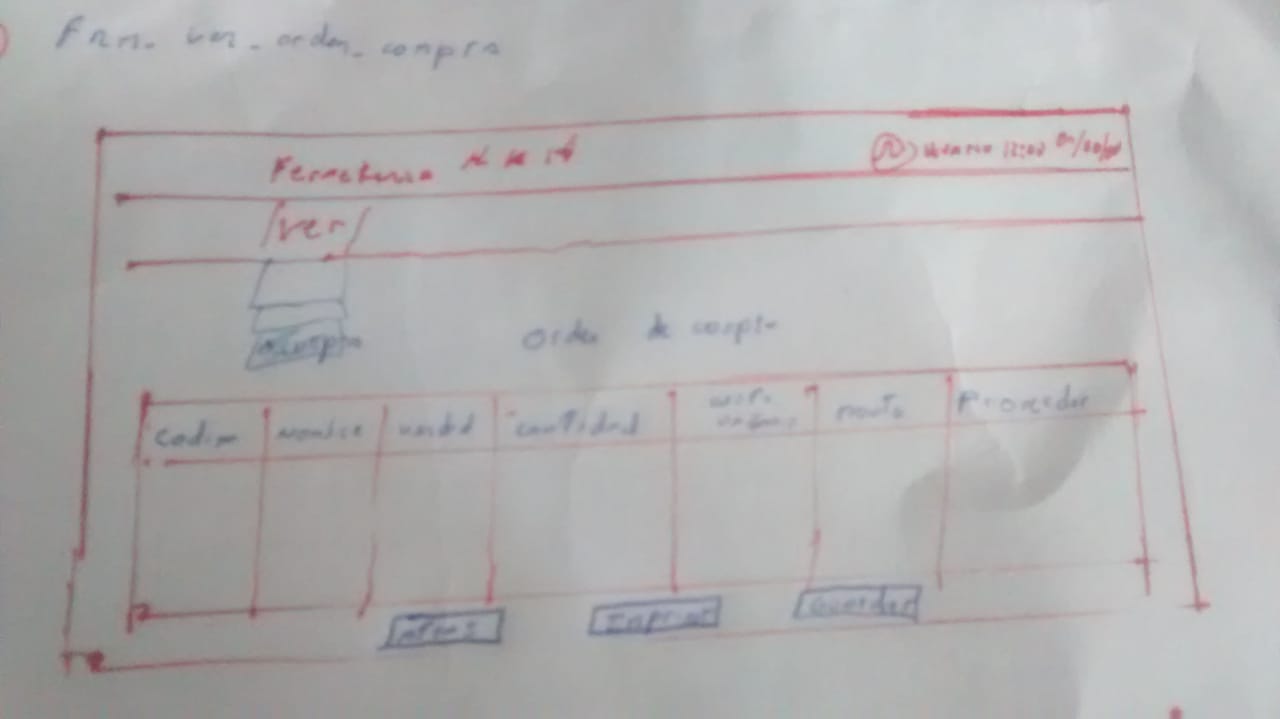 Frm_ ver_orden_compra
Ferreteria
usuario 12:00
/ver/
o compra
Orden de compra
Codigo nombre unidad cantidad monto Proveedor
atras Imprimir Guardar